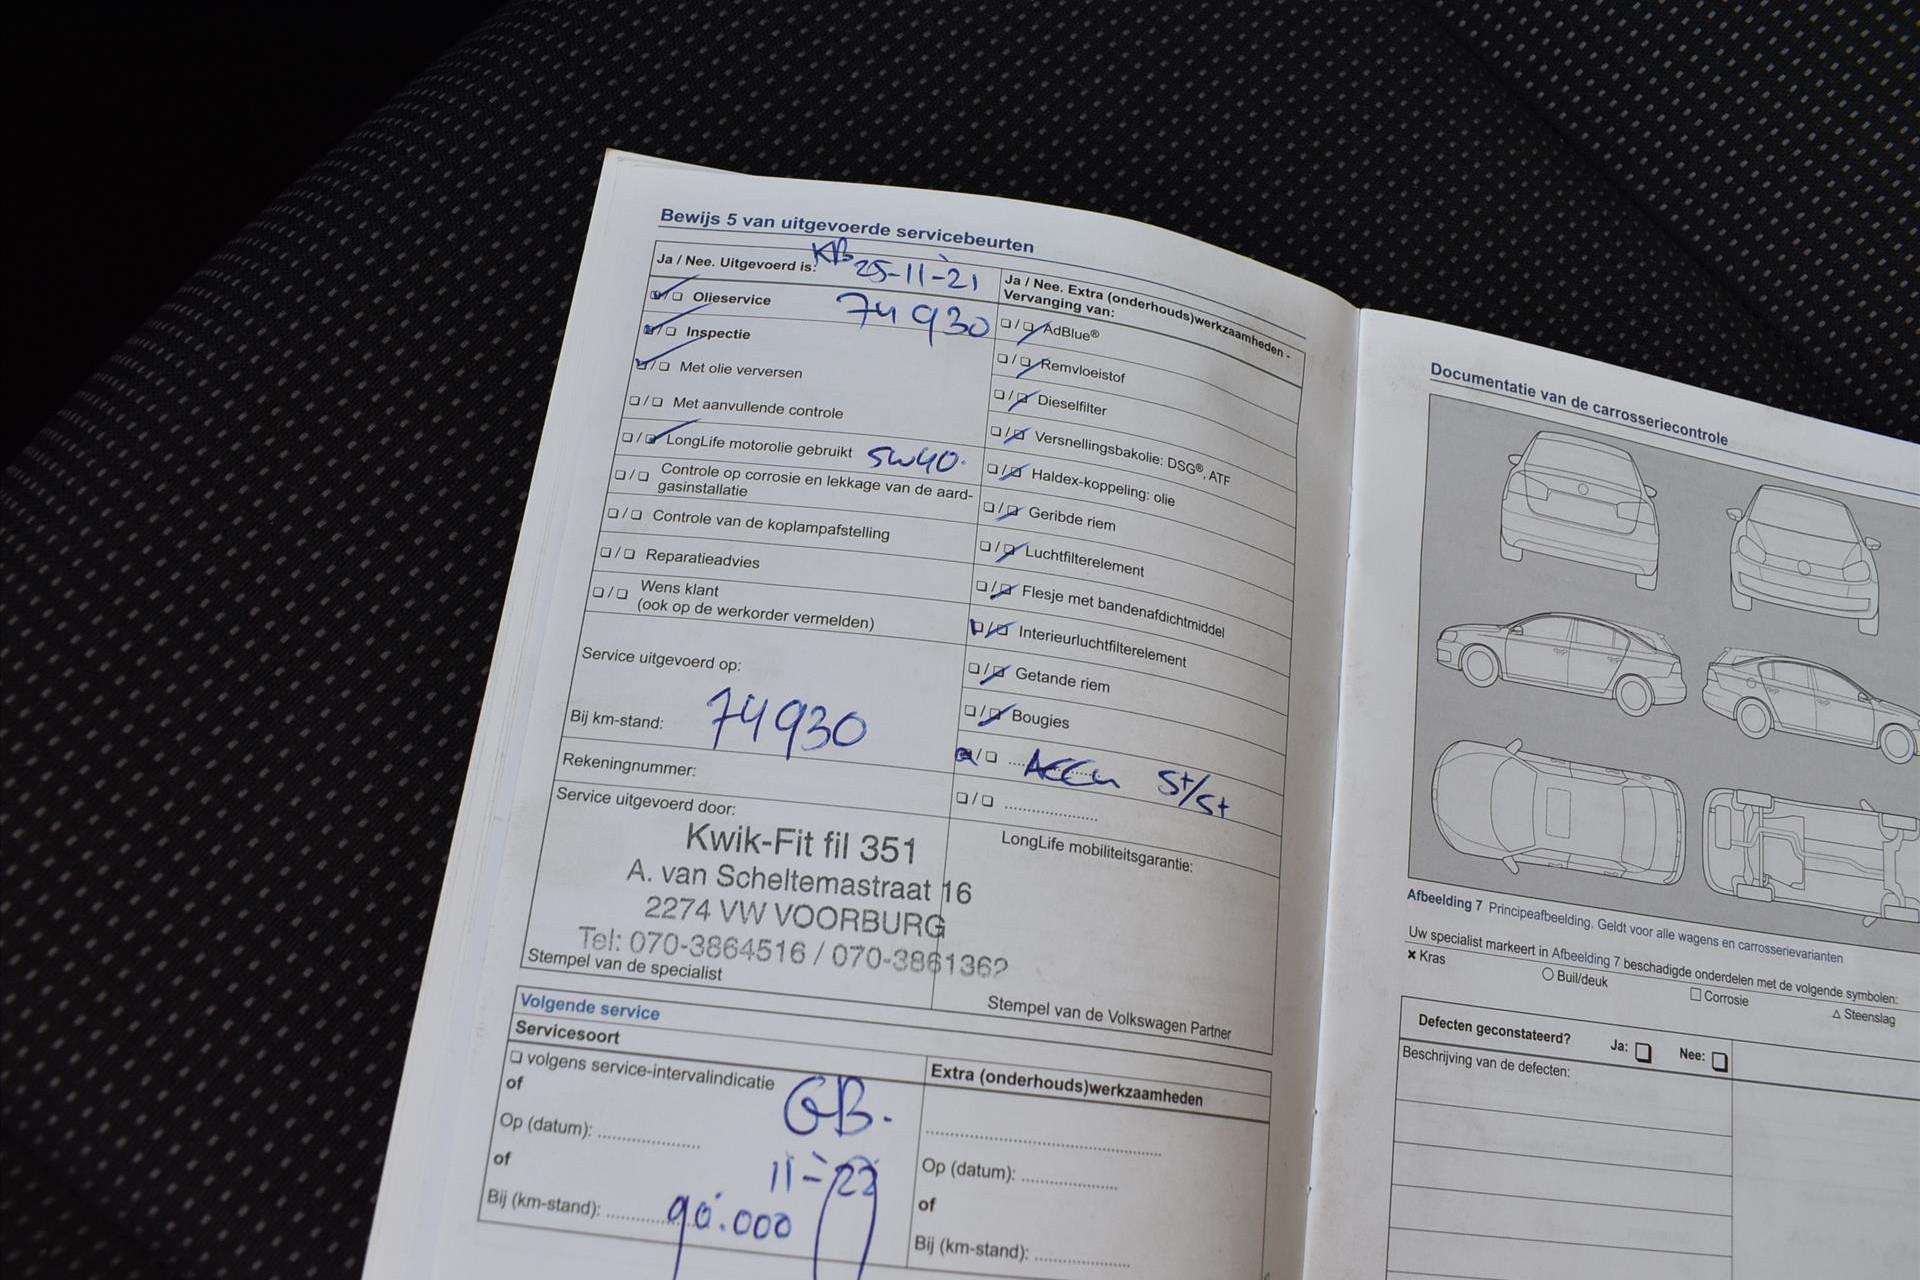 Bewijs 5 van uitgevoerde servicebeurten
Ja / Nee. Uitgevoerd is: KB 25-11-'21
❏/❏ Olieservice 74930
❏/❏ Inspectie
❏/❏ Met olie verversen
❏/❏ Met aanvullende controle
❏/❏ LongLife motorolie gebruikt 5W40.
❏/❏ Controle op corrosie en lekkage van de aard-
gasinstallatie
❏/❏ Controle van de koplampafstelling
❏/❏ Reparatieadvies
❏/❏ Wens klant
(ook op de werkorder vermelden)
Service uitgevoerd op:
Bij km-stand: 74930
Rekeningnummer:
Service uitgevoerd door:
Kwik-Fit fil 351
A. van Scheltemastraat 16
2274 VW VOORBURG
Tel: 070-3864516 / 070-3861362
Stempel van de specialist
Ja / Nee. Extra (onderhouds)werkzaamheden -
Vervanging van:
❏/❏ AdBlue®
❏/❏ Remvloeistof
❏/❏ Dieselfilter
❏/❏ Versnellingsbakolie: DSG®, ATF
❏/❏ Haldex-koppeling: olie
❏/❏ Geribde riem
❏/❏ Luchtfilterelement
❏/❏ Flesje met bandenafdichtmiddel
❏/❏ Interieurluchtfilterelement
❏/❏ Getande riem
❏/❏ Bougies
❏/❏ Accu St/St
❏/❏ ....................
LongLife mobiliteitsgarantie:
Stempel van de Volkswagen Partner
Volgende service
Servicesoort
❏ volgens service-intervalindicatie
of GB.
Op (datum): .................... 11-'22
of
Bij (km-stand): .................... 90.000
Extra (onderhouds)werkzaamheden
........................................
Op (datum): ....................
of
Bij (km-stand): ....................
Documentatie van de carrosseriecontrole
Afbeelding 7 Principeafbeelding. Geldt voor alle wagens en carrosserievarianten
Uw specialist markeert in Afbeelding 7 beschadigde onderdelen met de volgende symbolen:
× Kras ○ Buil/deuk □ Corrosie △ Steenslag
Defecten geconstateerd? Ja: ❏ Nee: ❏
Beschrijving van de defecten: